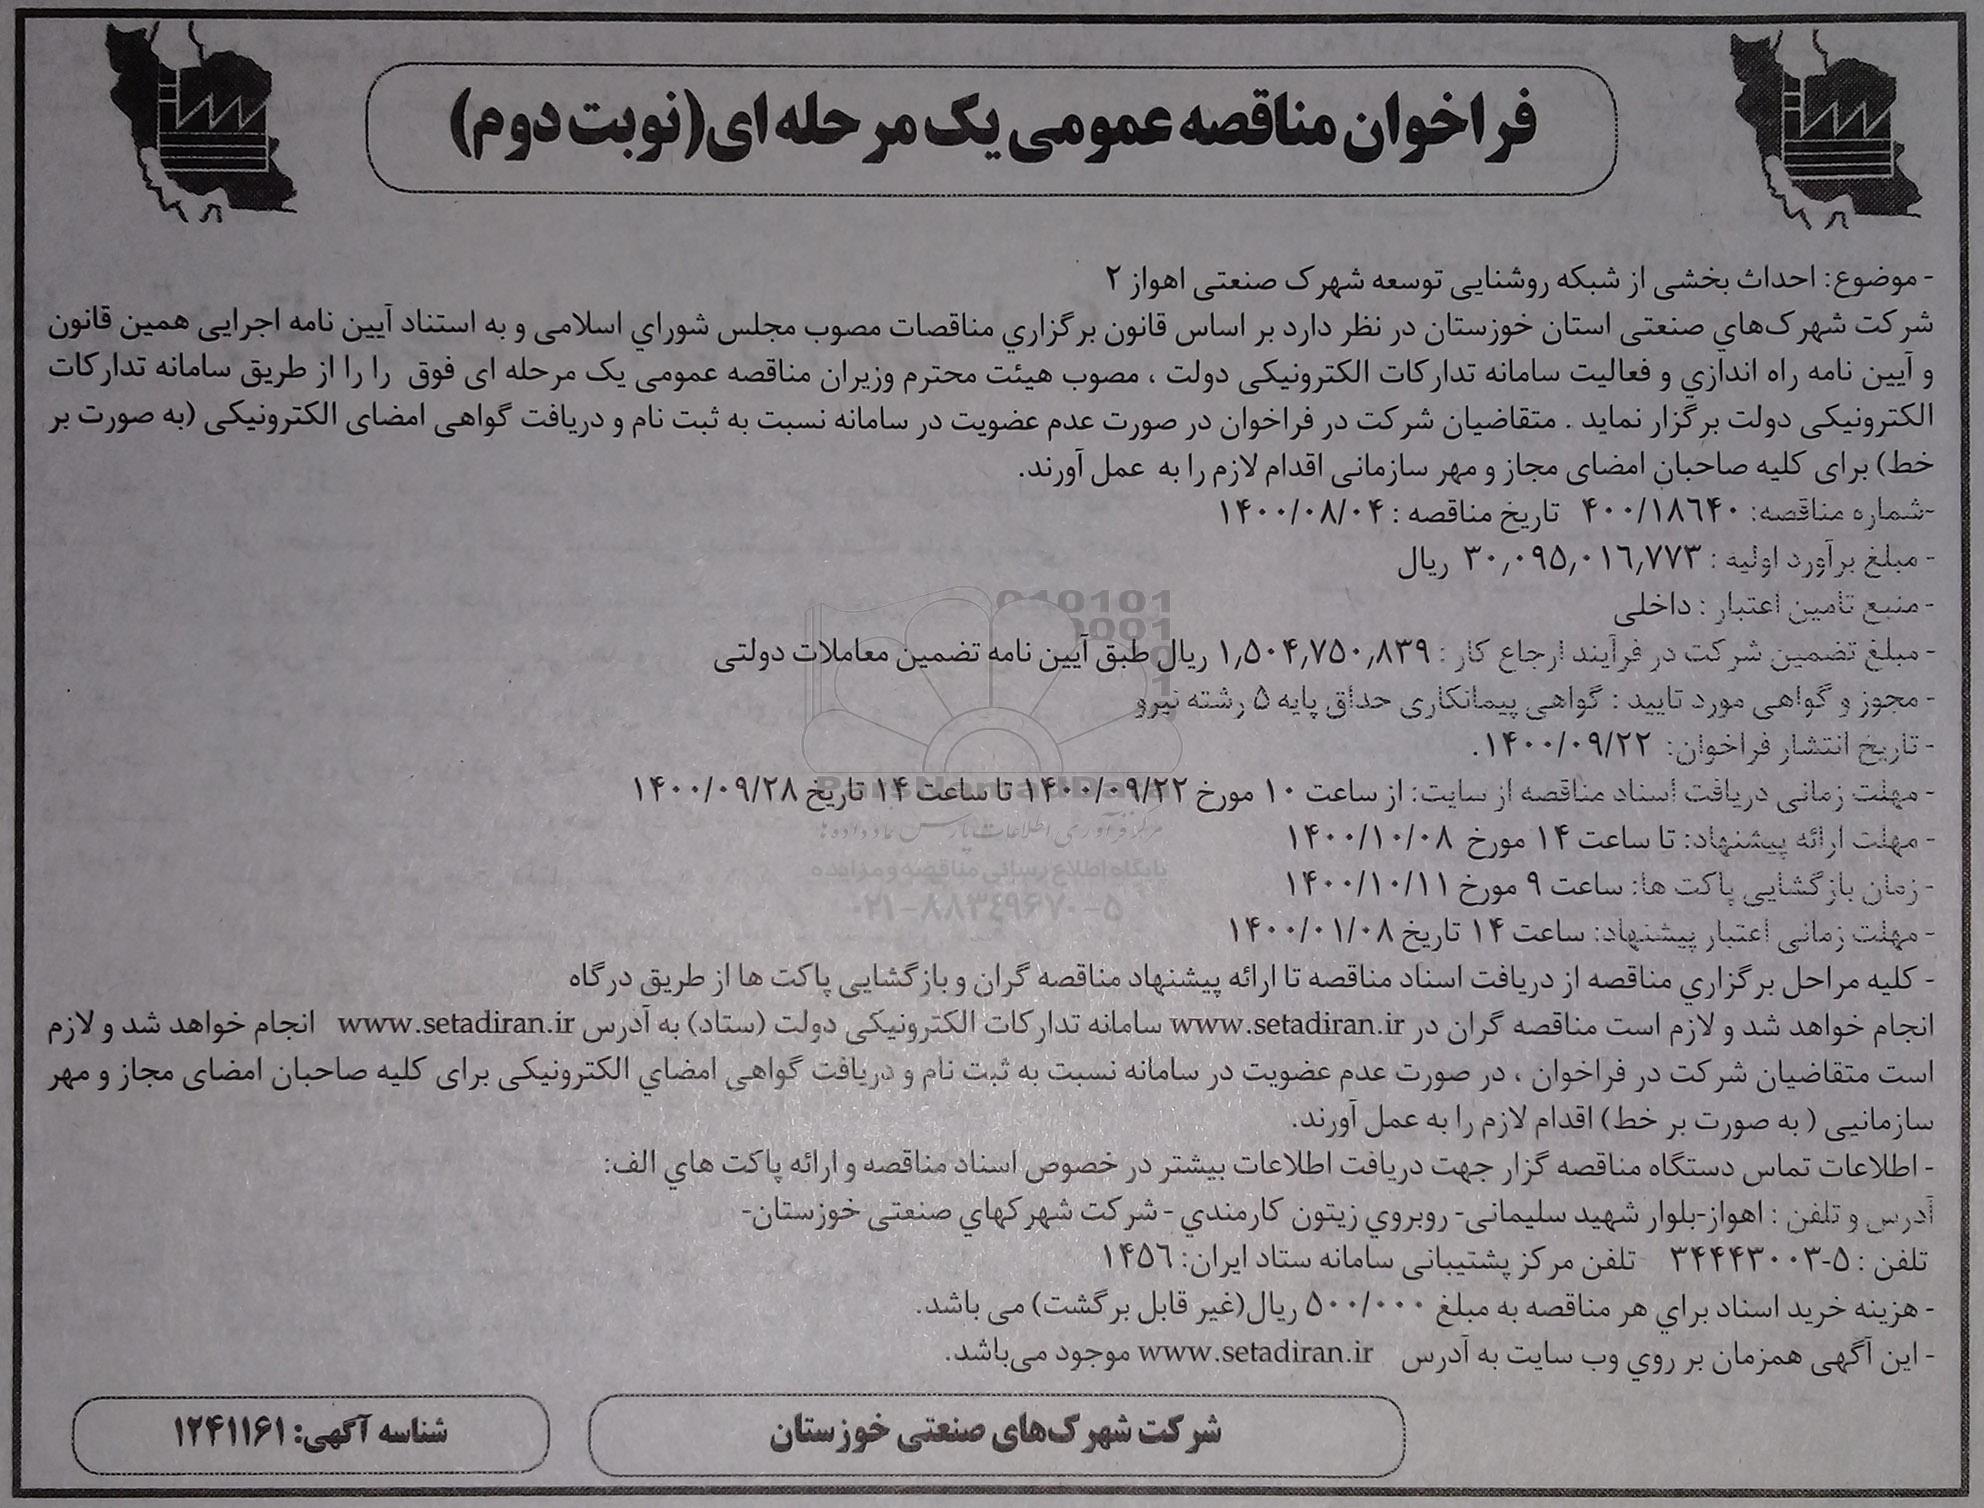 فراخوان مناقصه عمومی یک مرحله ای (نوبت دوم)
- موضوع: احداث بخشی از شبکه روشنایی توسعه شهرک صنعتی اهواز ۲
شرکت شهرک‌هاي صنعتی استان خوزستان در نظر دارد بر اساس قانون برگزاري مناقصات مصوب مجلس شوراي اسلامی و به استناد آیین نامه اجرایی همین قانون
و آیین نامه راه اندازي و فعالیت سامانه تدارکات الکترونیکی دولت ، مصوب هیئت محترم وزیران مناقصه عمومی یک مرحله ای فوق را را از طریق سامانه تدارکات
الکترونیکی دولت برگزار نماید . متقاضیان شرکت در فراخوان در صورت عدم عضویت در سامانه نسبت به ثبت نام و دریافت گواهی امضای الکترونیکی (به صورت بر
خط) برای کلیه صاحبان امضای مجاز و مهر سازمانی اقدام لازم را به عمل آورند.
-شماره مناقصه: ۴۰۰/۱۸٦۴۰ تاریخ مناقصه : ۱۴۰۰/۰۸/۰۴
- مبلغ برآورد اولیه : ۳۰,۰۹۵,۰۱٦,۷۷۳ ریال
- منبع تامین اعتبار : داخلی
- مبلغ تضمین شرکت در فرآیند ارجاع کار : ۱,۵۰۴,۷۵۰,۸۳۹ ریال طبق آیین نامه تضمین معاملات دولتی
- مجوز و گواهی مورد تایید : گواهی پیمانکاری حداق پایه ۵ رشته نیرو
- تاریخ انتشار فراخوان: ۱۴۰۰/۰۹/۲۲.
- مهلت زمانی دریافت اسناد مناقصه از سایت: از ساعت ۱۰ مورخ ۱۴۰۰/۰۹/۲۲ تا ساعت ۱۴ تاریخ ۱۴۰۰/۰۹/۲۸
- مهلت ارائه پیشنهاد: تا ساعت ۱۴ مورخ ۱۴۰۰/۱۰/۰۸
- زمان بازگشایی پاکت ها: ساعت ۹ مورخ ۱۴۰۰/۱۰/۱۱
- مهلت زمانی اعتبار پیشنهاد: ساعت ۱۴ تاریخ ۱۴۰۰/۰۱/۰۸
- کلیه مراحل برگزاري مناقصه از دریافت اسناد مناقصه تا ارائه پیشنهاد مناقصه گران و بازگشایی پاکت ها از طریق درگاه
انجام خواهد شد و لازم است مناقصه گران در www.setadiran.ir سامانه تدارکات الکترونیکی دولت (ستاد) به آدرس www.setadiran.ir انجام خواهد شد و لازم
است متقاضیان شرکت در فراخوان ، در صورت عدم عضویت در سامانه نسبت به ثبت نام و دریافت گواهی امضاي الکترونیکی برای کلیه صاحبان امضای مجاز و مهر
سازمانیی ( به صورت بر خط) اقدام لازم را به عمل آورند.
- اطلاعات تماس دستگاه مناقصه گزار جهت دریافت اطلاعات بیشتر در خصوص اسناد مناقصه و ارائه پاکت هاي الف:
آدرس و تلفن : اهواز-بلوار شهید سلیمانی- روبروي زیتون کارمندي - شرکت شهرکهاي صنعتی خوزستان-
تلفن : ۵-۳۴۴۴۳۰۰۳ تلفن مرکز پشتیبانی سامانه ستاد ایران: ۱۴۵٦
- هزینه خرید اسناد براي هر مناقصه به مبلغ ۵۰۰/۰۰۰ ریال(غیر قابل برگشت) می باشد.
- این آگهی همزمان بر روي وب سایت به آدرس www.setadiran.ir موجود می‌باشد.
شرکت شهرک‌های صنعتی خوزستان
شناسه آگهی: ۱۲۴۱۱۶۱
010101
0001
ParsNamadData
مرکز فرآوری اطلاعات پارس نماد داده ها
پایگاه اطلاع رسانی مناقصه و مزایده
۰۲۱-۸۸۳٤۹۶۷۰-۵